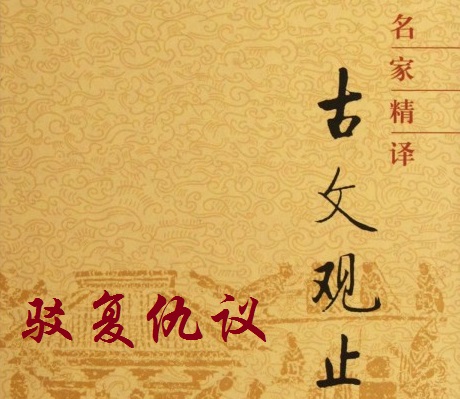 名家精译
古文观止
驳复仇议